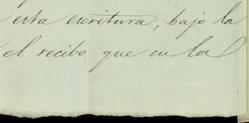 esta escritura, bajo la
el recibo que en la